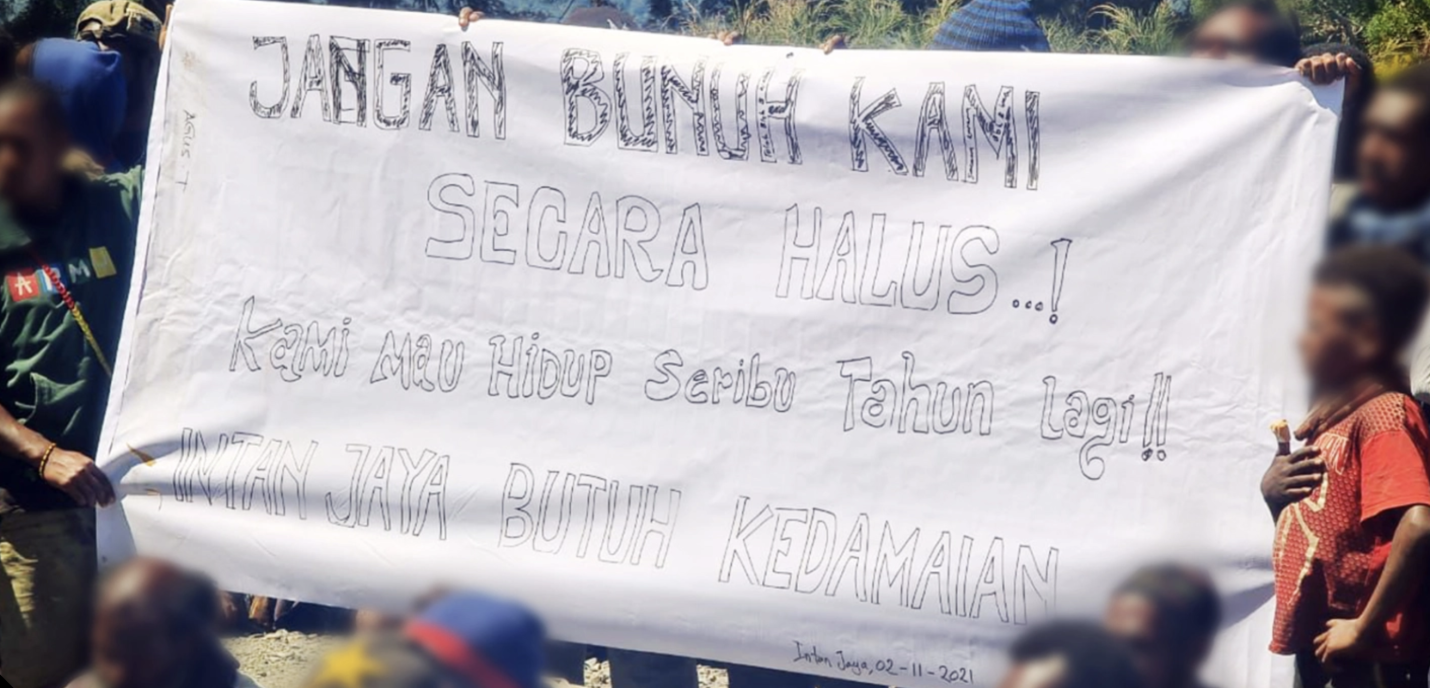 JANGAN BUNUH KAMI
SEGARA HALUS...!
Kami Mau Hidup Seribu Tahun Lagi!!
INTAN JAYA BUTUH KEDAMAIAN
Intan Jaya, 02-11-2021
AGUS T